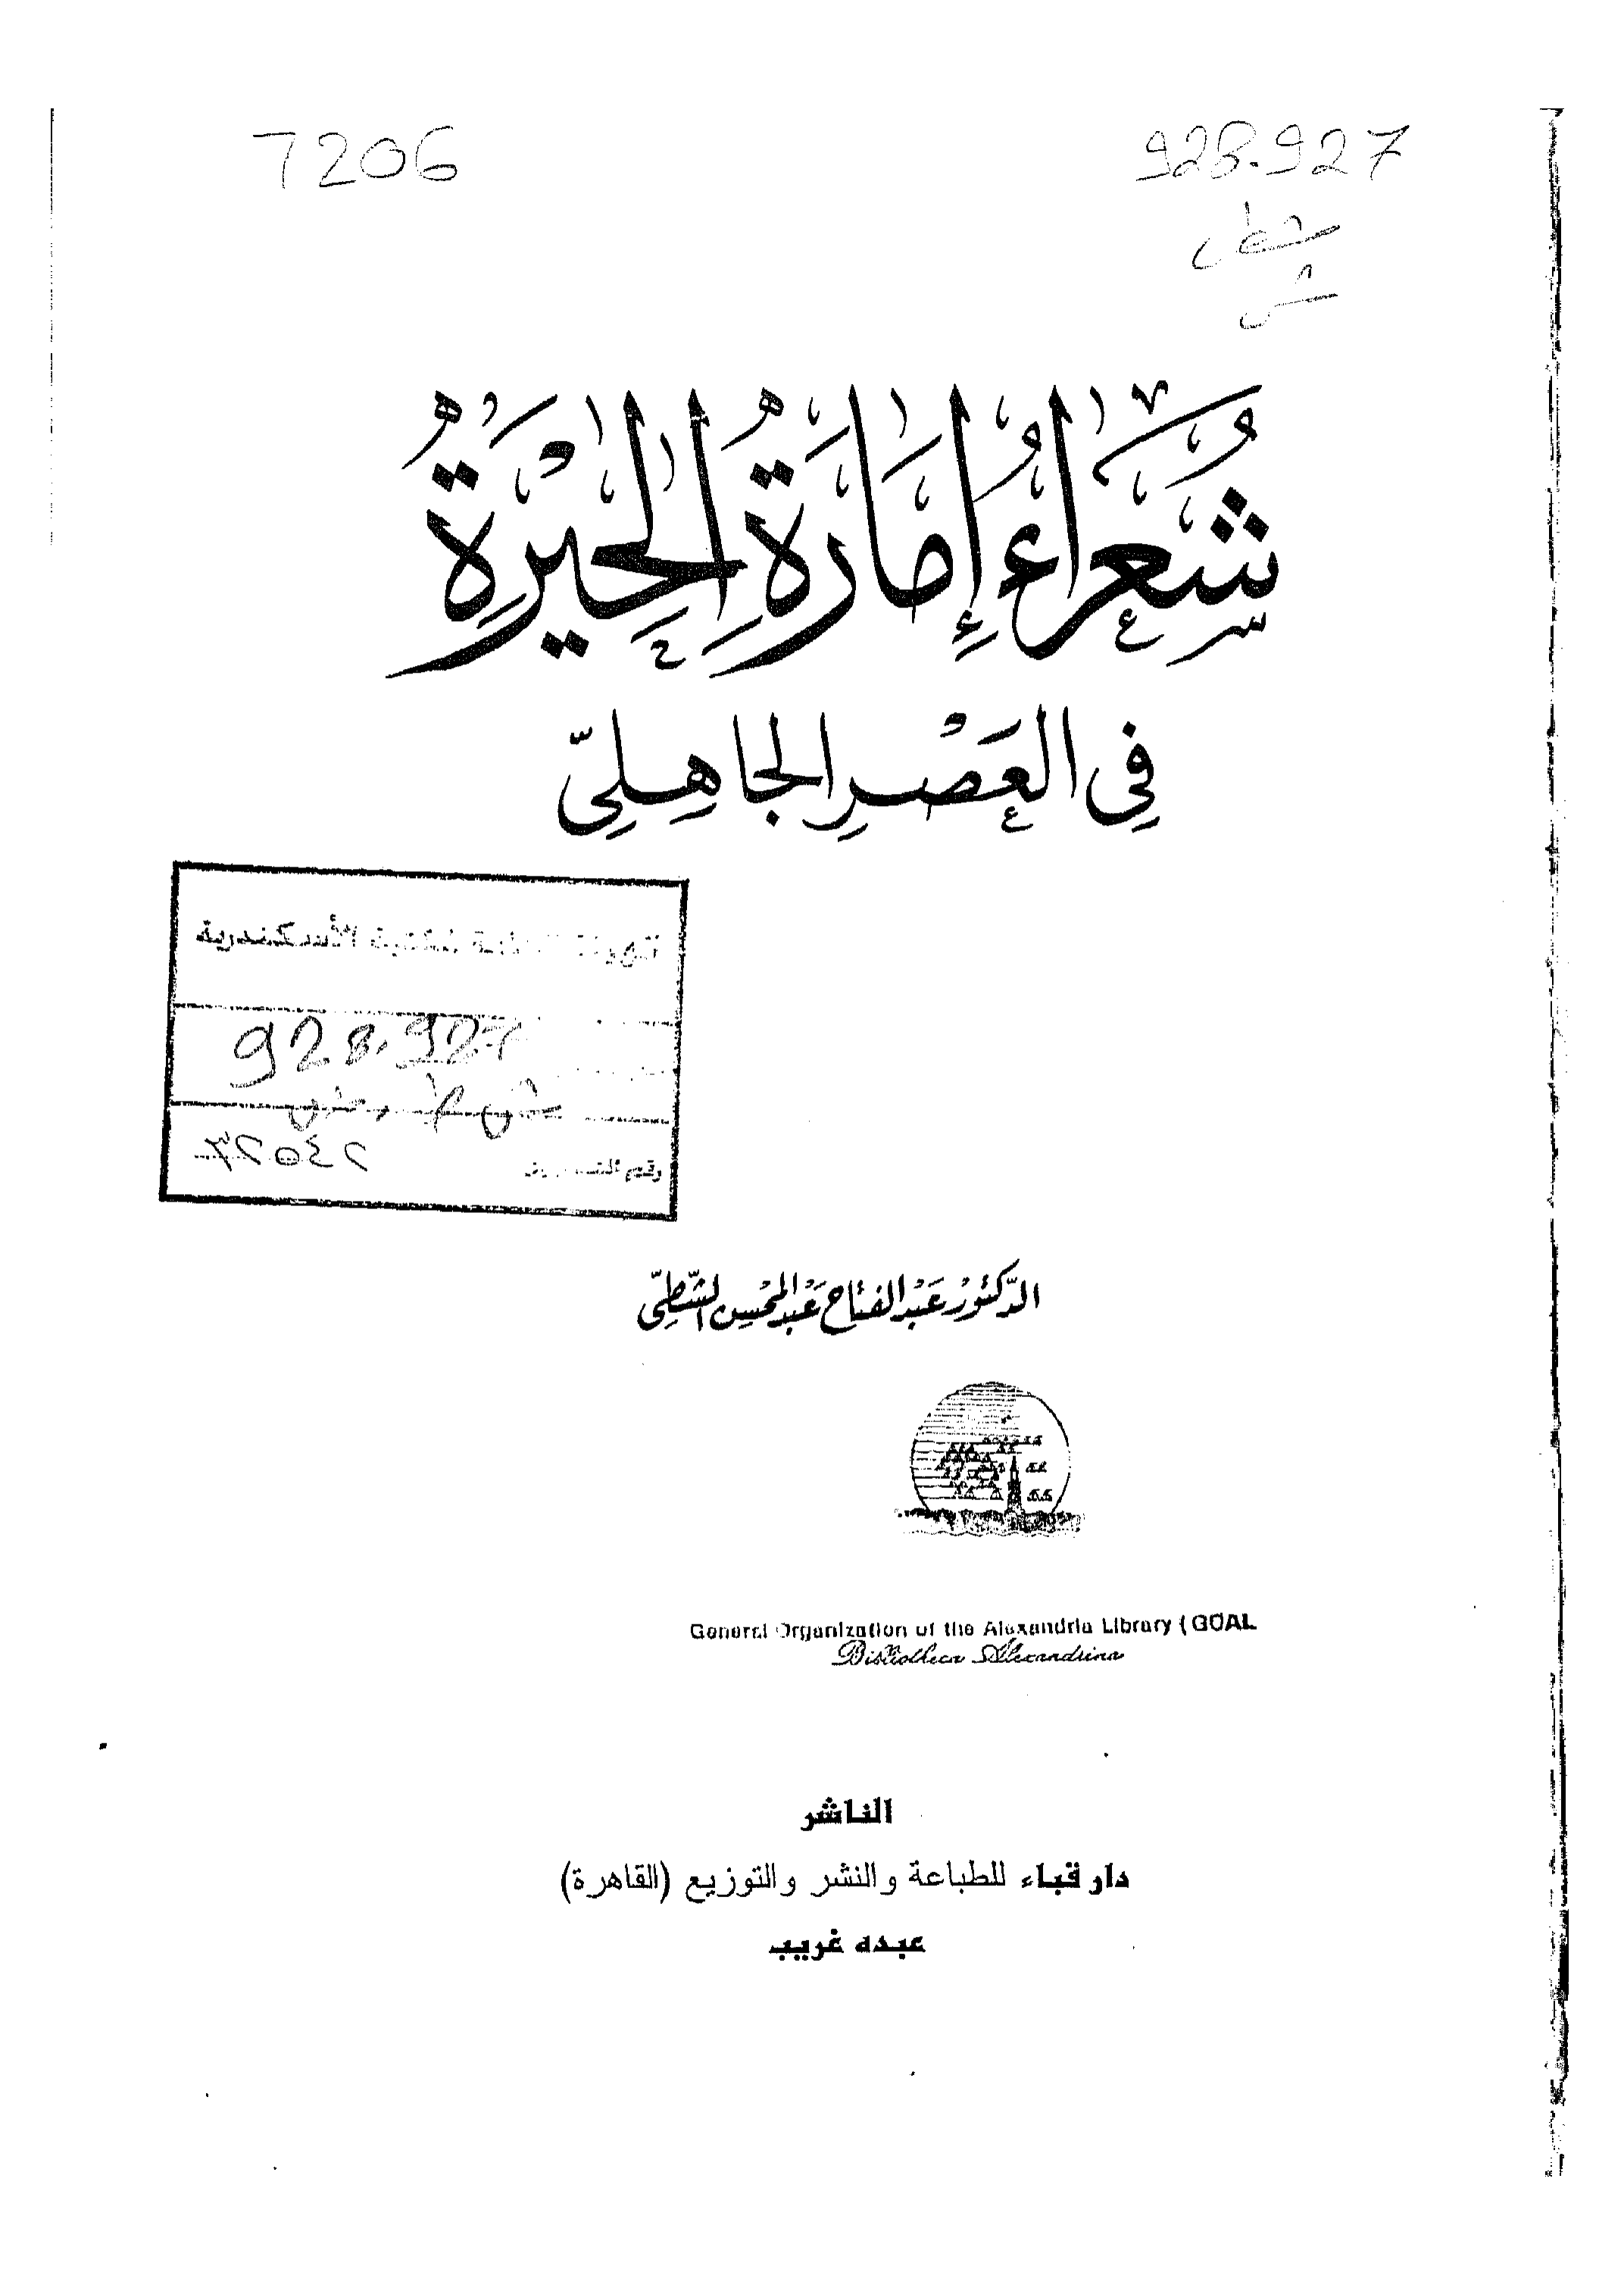 7206
928.927
شطى
ش
شُعَرَاءُ إِمَارَةِ الحِيْرَةِ
فِى العَصْرِ الجَاهِلِىّ
الأسكندرية
928.927
الدّكتُور عَبْدالفتاح عَبْدالمحْسِن الشّطِىّ
General Organization of the Alexandria Library (GOAL
Bibliotheca Alexandrina
الناشر
دار قباء للطباعة والنشر والتوزيع (القاهرة)
عبده غريب